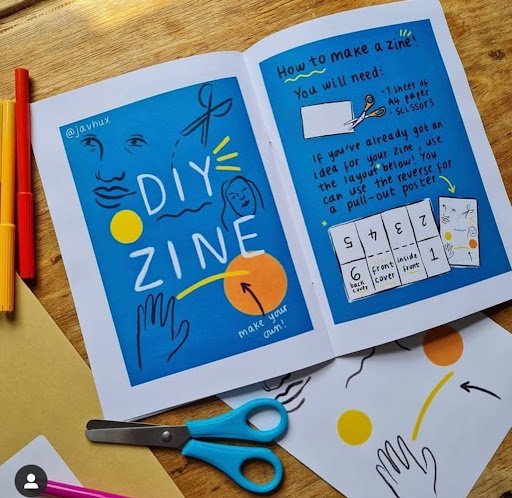 @javhux
DIY
ZINE
make your
own!
How to make a zine!
You will need:
· 1 sheet of
A4 paper
· scissors
If you've already got an
idea for your zine, use
the layout below! You
can use the reverse for
a pull-out poster
5 4 3 2
6 back cover
front cover
inside front
1